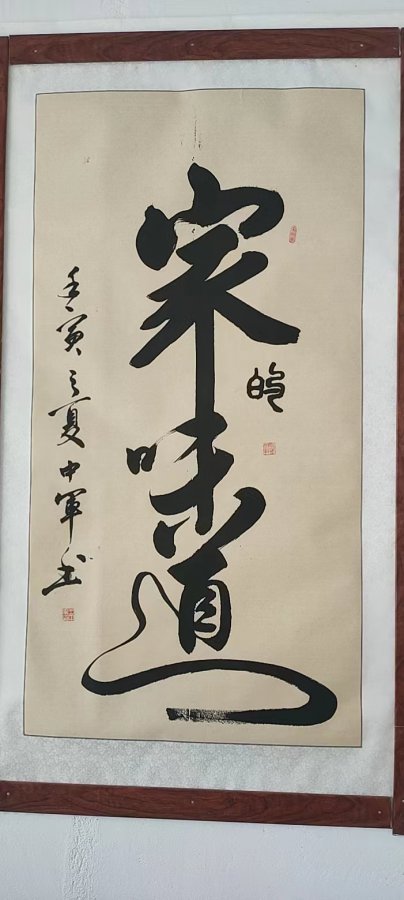 家的味道
壬寅之夏中军书